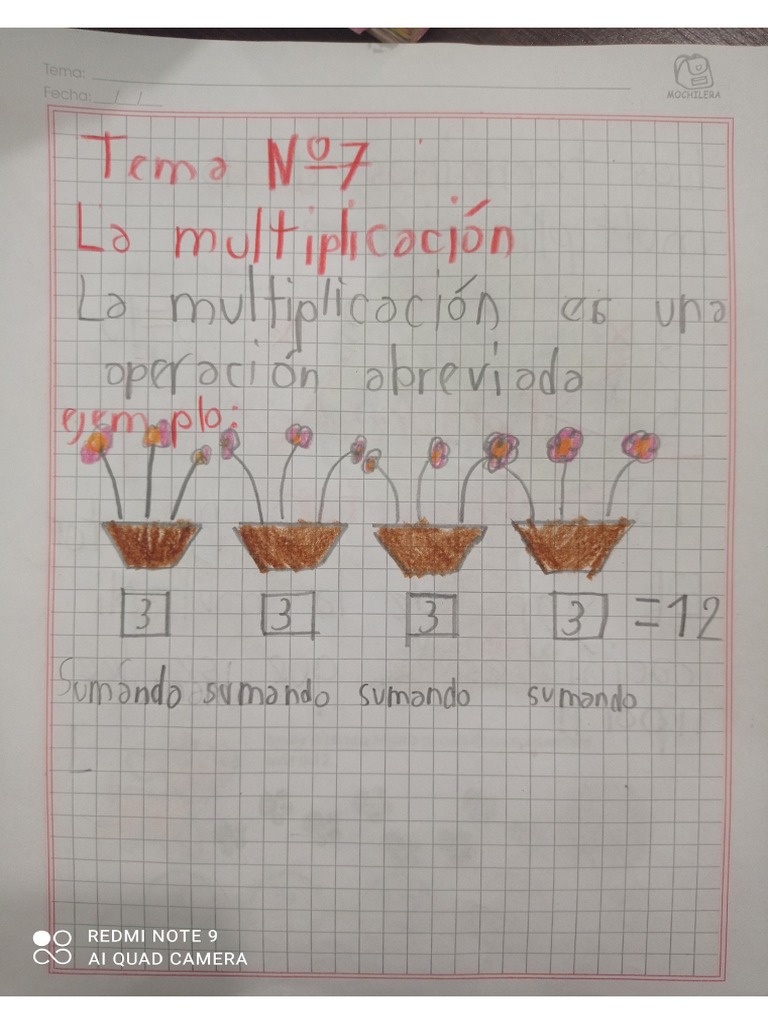 Tema:
Fecha: / /
MOCHILERA
Tema Nº7
La multiplicación
La multiplicación es una
operación abreviada
ejemplo:
3 3 3 3 =12
Sumando sumando sumando sumando
REDMI NOTE 9
AI QUAD CAMERA